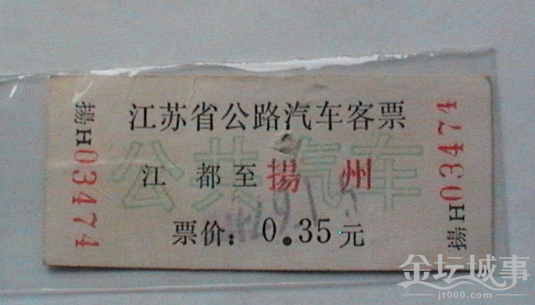 江苏省公路汽车客票
公共汽车
江都至揚州
票价：0.35元
揚H03474
揚H03474
金坛城事
jt000.com